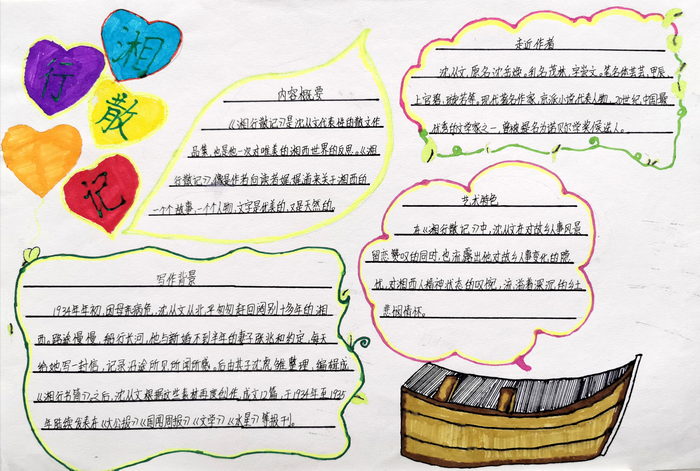 湘
行
散
记
内容概要
《湘行散记》是沈从文代表性的散文作
品集,也是他一次对唯美的湘西世界的反思。《湘
行散记》,像是作者向读者娓娓道来关于湘西的
一个个故事,一个个人物,文字是优美的,又是天然的。
走近作者
沈从文,原名沈岳焕,乳名茂林,字崇文。笔名休芸芸、甲辰、
上官碧、璇若等。现代著名作家,京派小说代表人物,20世纪中国最
优秀的文学家之一,曾被提名为诺贝尔学奖候选人。
艺术特色
在《湘行散记》中,沈从文在对故乡人事风景
留恋赞叹的同时,也流露出他对故乡人事变化的隐
忧,对湘西人精神状态的叹惋,流淌着深沉的乡土
悲悯情怀。
写作背景
1934年年初,因母亲病危,沈从文从北平匆匆赶回阔别十多年的湘
西。路途漫漫,船行长河,他与新婚不到半年的妻子张兆和约定,每天
给她写一封信,记录沿途所见所闻所感。后由其子沈虎雏整理、编辑成
《湘行书简》。之后,沈从文根据这些素材再度创作,成文12篇,于1934年至1935
年陆续发表在《大公报》《国闻周报》《文学》《水星》等报刊。